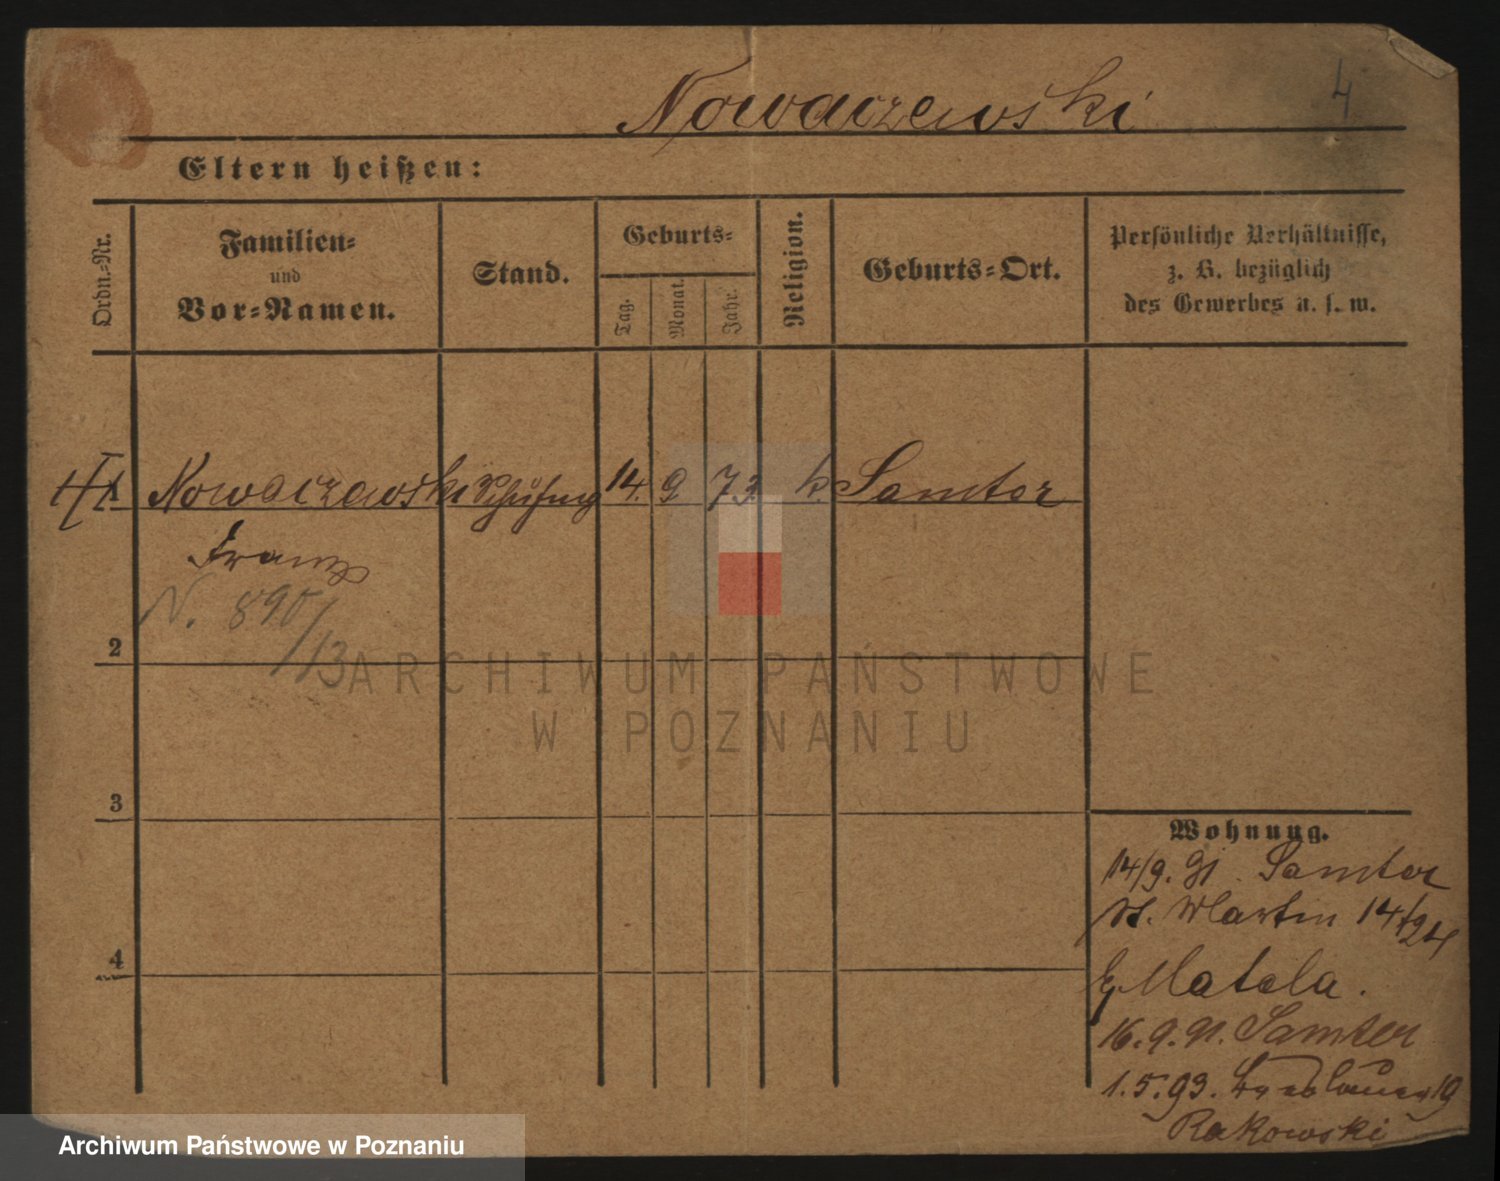 Nowaczewski
4
Eltern heißen:
Ordn.-Nr.
Familien-
und
Vor-Namen.
Stand.
Geburts-
Tag.
Monat.
Jahr.
Religion.
Geburts-Ort.
Persönliche Verhältnisse,
z. B. bezüglich
des Gewerbes u. s. w.
1 Nowaczewski 14. 9 73 k. Samter
Franz
N. 890/13
2
ARCHIWUM PAŃSTWOWE
W POZNANIU
3
4
Wohnung.
14/9. 91. Samter
St. Martin 14/
b/ Matela.
16. 9. 91. Samter
1. 5. 93. 19
Rakowski
Archiwum Państwowe w Poznaniu